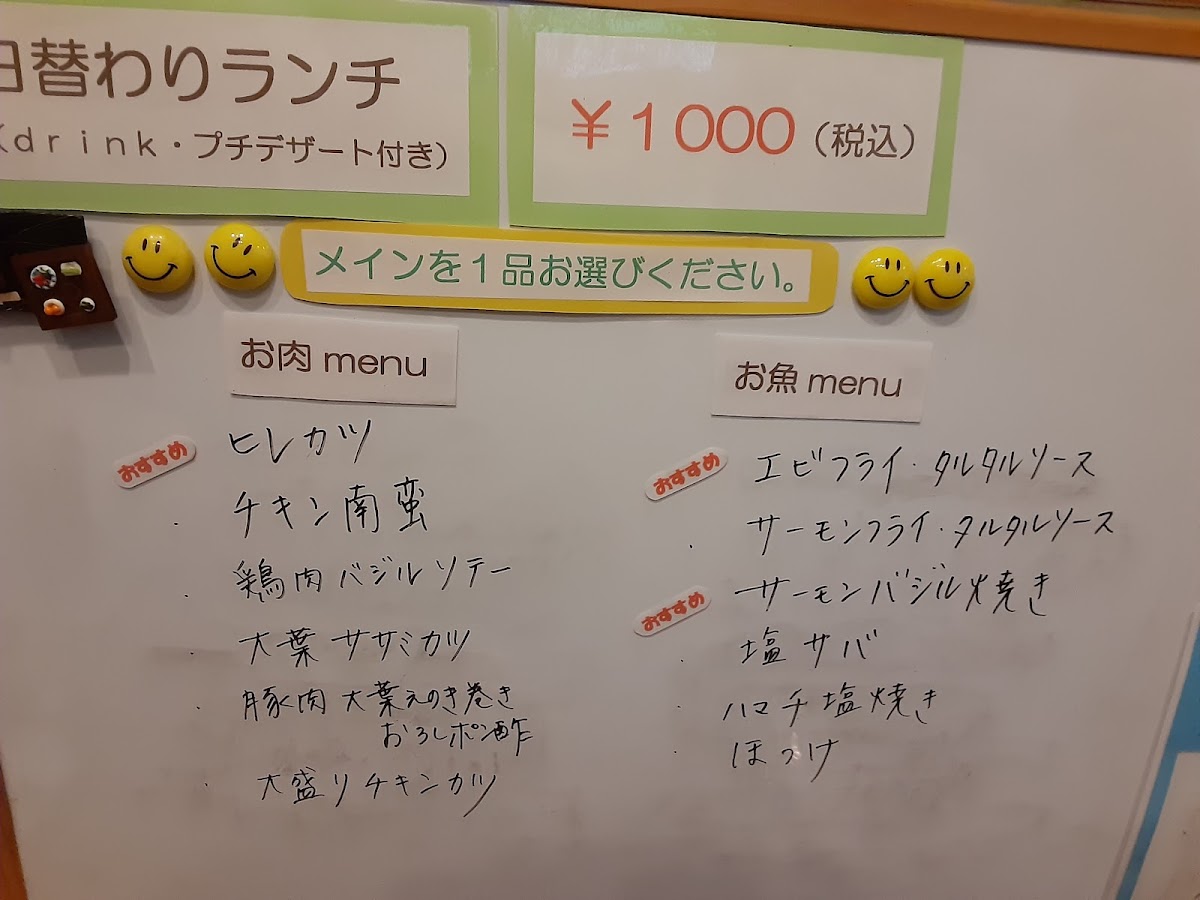 日替わりランチ
(drink・プチデザート付き)
￥1000(税込)
メインを1品お選びください。
お肉 menu
おすすめ ヒレカツ
・チキン南蛮
・鶏肉バジルソテー
・大葉ササミカツ
・豚肉大葉えのき巻き
おろしポン酢
・大盛りチキンカツ
お魚 menu
おすすめ エビフライ・タルタルソース
・サーモンフライ・タルタルソース
おすすめ サーモンバジル焼き
・塩サバ
・ハマチ塩焼き
・ほっけ